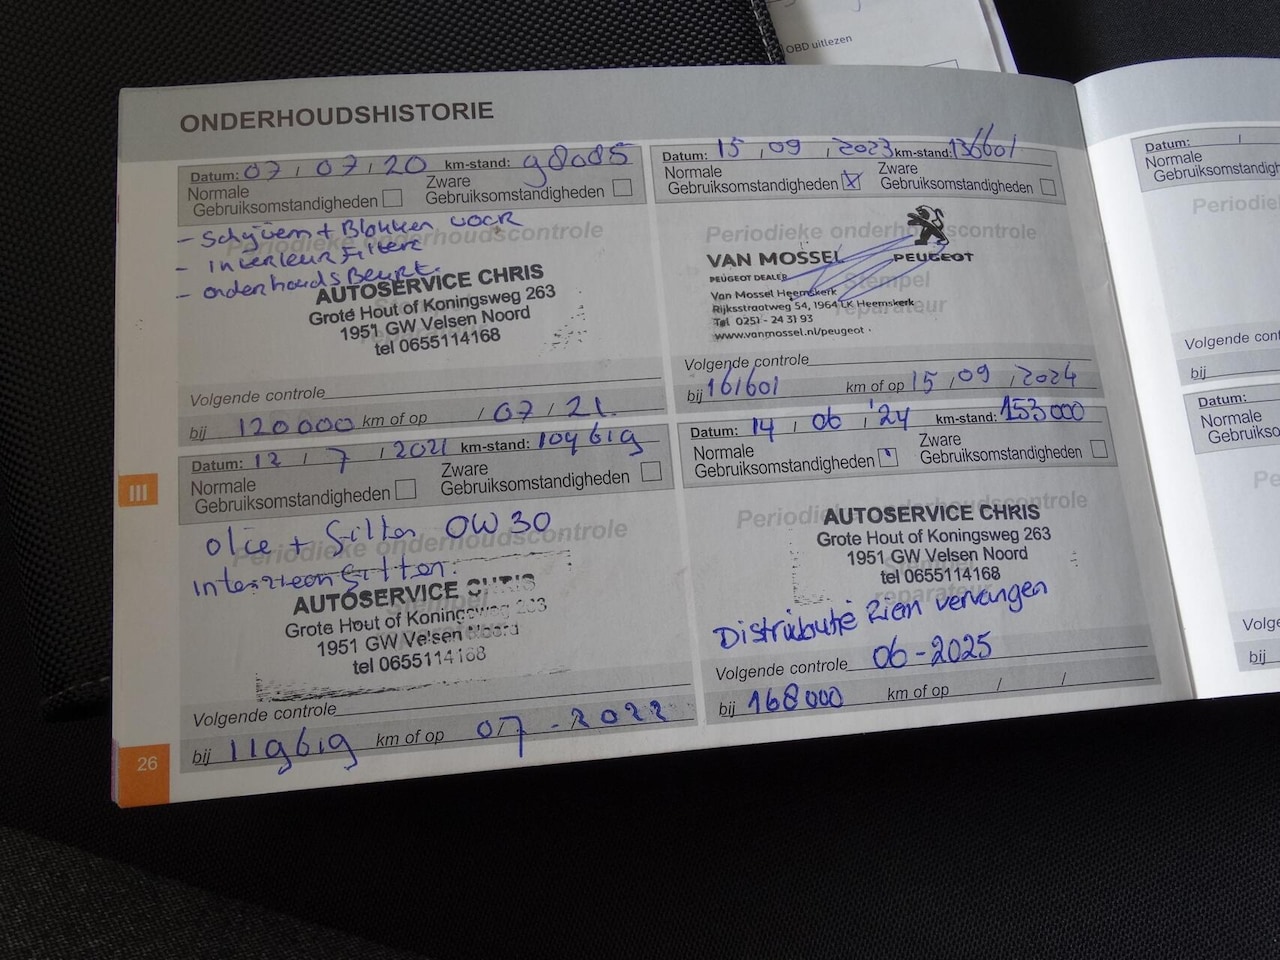 OBD uitlezen
ONDERHOUDSHISTORIE
Datum: 07 / 07 / 20 km-stand: 98085
Normale Gebruiksomstandigheden
Zware Gebruiksomstandigheden
- Schijven + Blokken voor
- interieurfilter
- onderhoudsBeurt.
Periodieke onderhoudscontrole
AUTOSERVICE CHRIS
Grote Hout of Koningsweg 263
1951 GW Velsen Noord
tel 0655114168
Volgende controle
bij 120000 km of op / 07 / 21
Datum: 12 / 7 / 2021 km-stand: 109619
Normale Gebruiksomstandigheden
Zware Gebruiksomstandigheden
olie + filter 0W30
Periodieke onderhoudscontrole
AUTOSERVICE CHRIS
Grote Hout of Koningsweg 263
1951 GW Velsen Noord
tel 0655114168
Volgende controle
bij 119619 km of op 07 - 2022
III
26
Datum: 15 / 09 / 2023 km-stand: 136601
Normale Gebruiksomstandigheden
Zware Gebruiksomstandigheden
Periodieke onderhoudscontrole
Stempel
reparateur
VAN MOSSEL
PEUGEOT DEALER
PEUGEOT
Van Mossel Heemskerk
Rijksstraatweg 54, 1964 LK Heemskerk
Tel 0251 - 24 31 93
www.vanmossel.nl/peugeot
Volgende controle
bij 161601 km of op 15 / 09 / 2024
Datum: 14 / 06 / '24 km-stand: 153000
Normale Gebruiksomstandigheden
Zware Gebruiksomstandigheden
Periodieke onderhoudscontrole
Stempel
reparateur
AUTOSERVICE CHRIS
Grote Hout of Koningsweg 263
1951 GW Velsen Noord
tel 0655114168
Distributie Riem vervangen
Volgende controle 06-2025
bij 168000 km of op / /
Datum: /
Normale
Gebruiksomstandig
Periodieke
Volgende cont
bij
Datum:
Normale
Gebruikso
Pe
Volge
bij